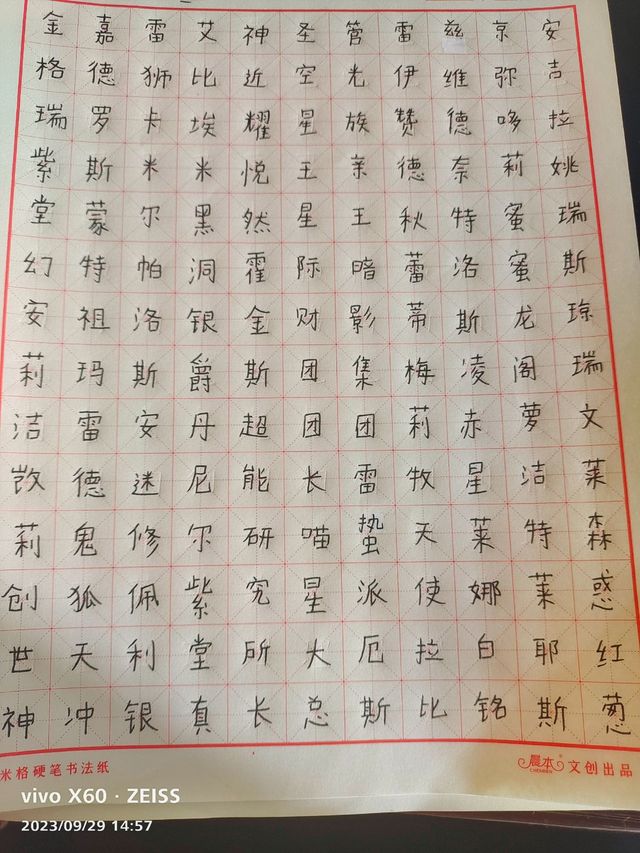 金嘉雷艾神圣管雷慈京安
格德狮比近空光伊维弥吉
瑞罗卡埃耀星族赞德哆拉
紫斯米米悦王亲德奈莉姚
堂蒙尔黑然星王秋特蜜瑞
幻特帕洞霍际暗蕾洛蜜斯
安祖洛银金财影蒂斯龙琼
莉玛斯爵斯团集梅凌阁瑞
洁雷安丹超团团莉赤萝文
敳德迷尼能长雷牧星洁莱
莉鬼修尔研喵蛰天莱特森
创狐佩紫究星派使娜莱惑
世天利堂所大厄拉白耶红
神冲银真长总斯比铭斯葱
米格硬笔书法纸
晨本® 文创出品
CHENBEN
vivo X60 · ZEISS
2023/09/29 14:57